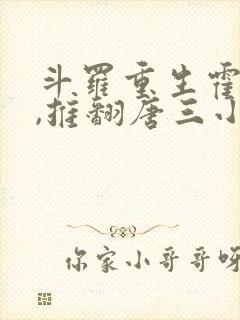 斗羅重生霍
,推翻唐三小
你家小哥哥呀